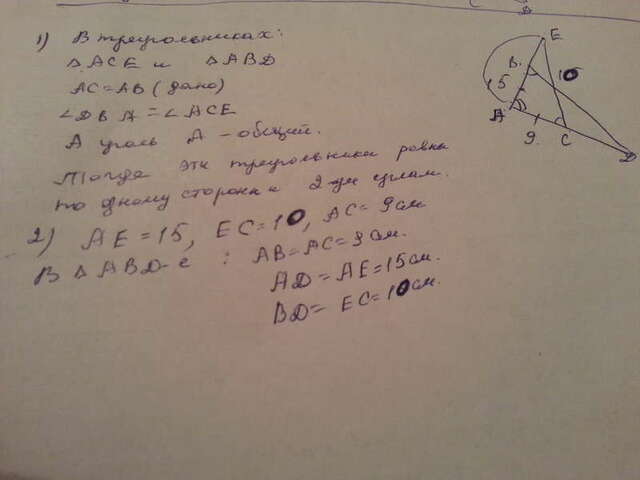 1) В треугольниках:
△ ACE и △ ABD
AC=AB (дано)
∠DBA=∠ACE
А угол А - общий.
Тогда эти треугольники равны
по одному стороны и 2-ум углам.
2) AE=15, EC=10, AC=9см
В △ ABD-е : AB=AC=9см.
AD=AE=15см.
BD= EC=10см.
E
B
15
10
A
9.
C
D